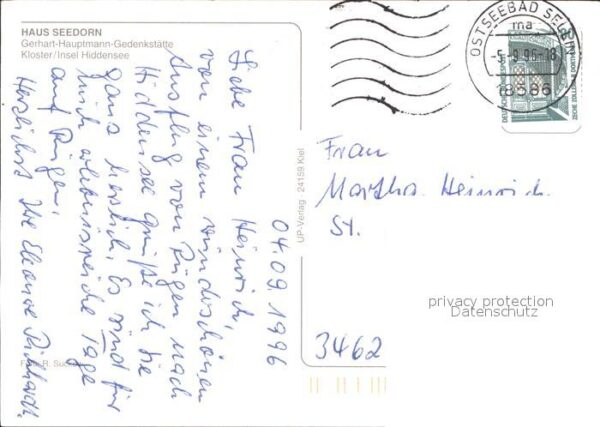 HAUS SEEDORN
Gerhart-Hauptmann-Gedenkstätte
Kloster/Insel Hiddensee
04.09.1996
Liebe Frau Heinrich,
von einem wunderschönen
Ausflug von Rügen nach
Hiddensee grüße ich Sie
ganz herzlich. Es sind für
mich erlebnisreiche Tage
auf Rügen.
Herzlichst Ihre Eleonore
UP-Verlag 24159 Kiel
OSTSEEBAD SELLIN
ma
-5.-9.96-18
18586
DEUTSCHE
ZECHE ZOLLERN II DORTMUND
Frau
Martha Heinrich
St.
3462
privacy protection
Datenschutz